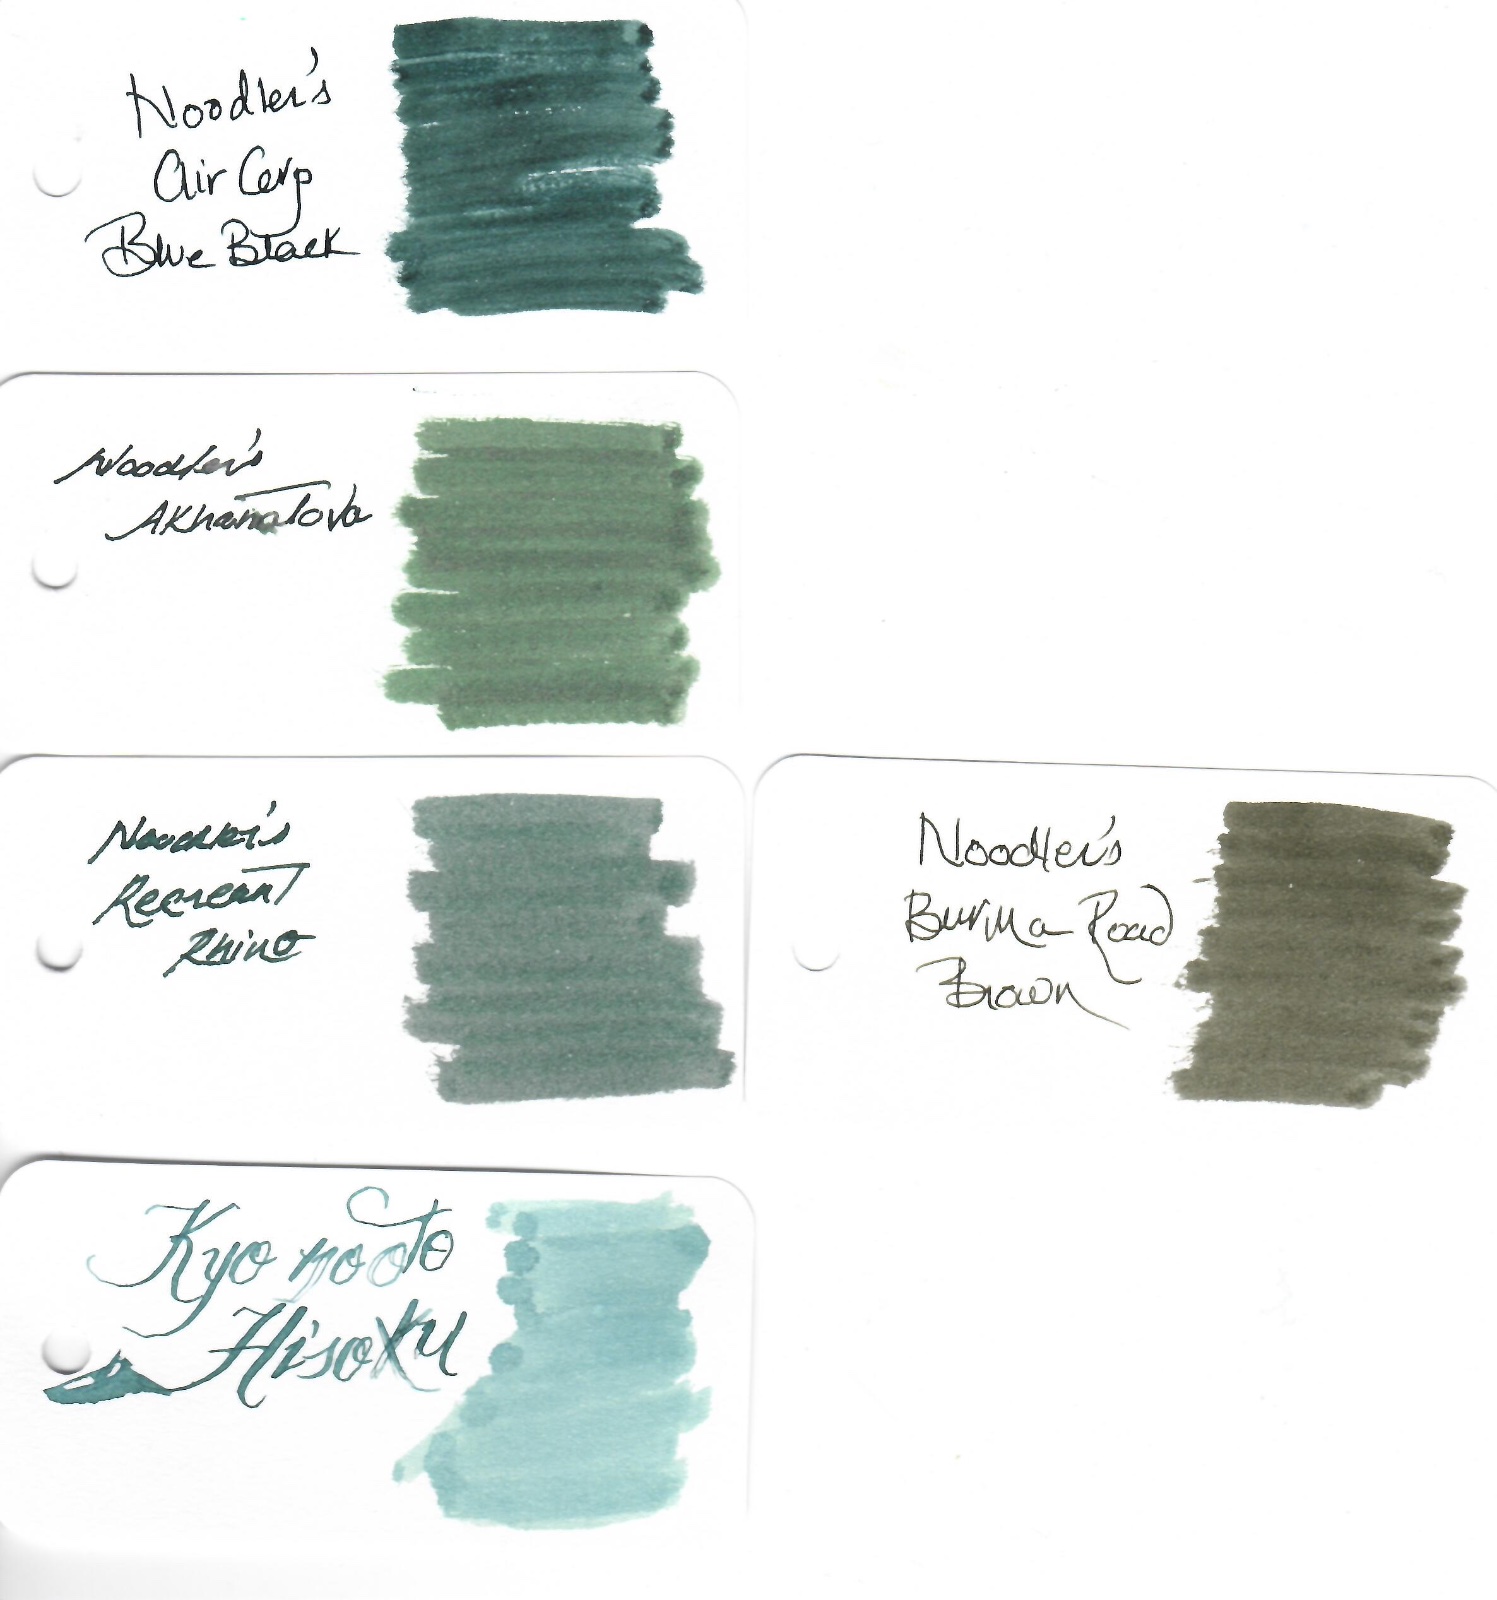 Noodler's
Air Corp
Blue Black
Noodler's
Akhmatova
Noodler's
Recreant
Rhino
Noodler's
Burma Road
Brown
Kyo no oto
Hisoku